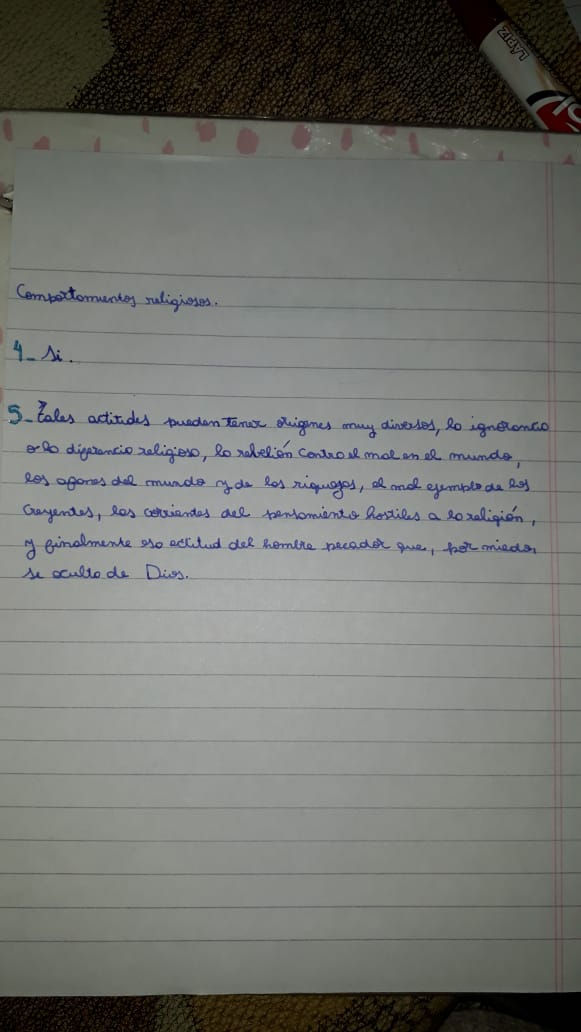 LÁPIZ
Comportamientos religiosos.
4_ Si.
5_ Tales actitudes pueden tener origenes muy diversos, la ignorancia
o la diferencia religiosa, la rebelión contra el mal en el mundo,
los afanes del mundo y de las riquezas, el mal ejemplo de los
creyentes, las corrientes del pensamiento hostiles a la religión,
y finalmente esa actitud del hombre pecador que, por miedo,
se oculta de Dios.